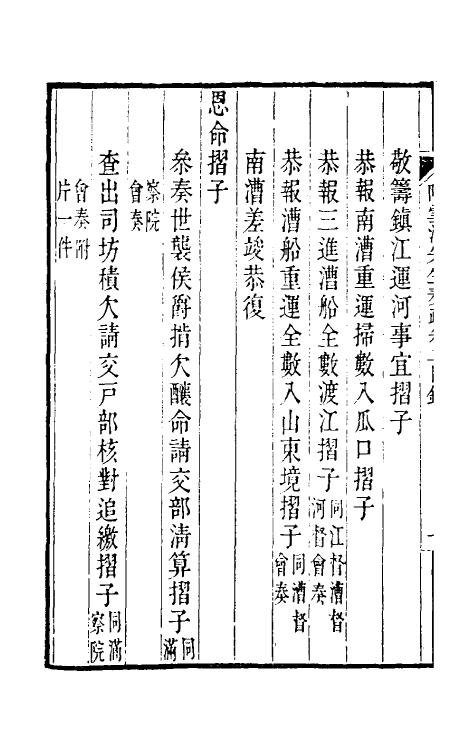 敬籌鎮江運河事宜摺子
恭報南漕重運掃數入瓜口摺子
恭報三進漕船全數渡江摺子同江督漕督河督會奏
恭報漕船重運全數入山東境摺子同漕督會奏
南漕差竣恭復
恩命摺子
叅奏世襲侯爵掯欠釀命請交部清算摺子同滿
察院會奏
查出司坊積欠請交戸部核對追繳摺子同滿察院
會奏附片一件